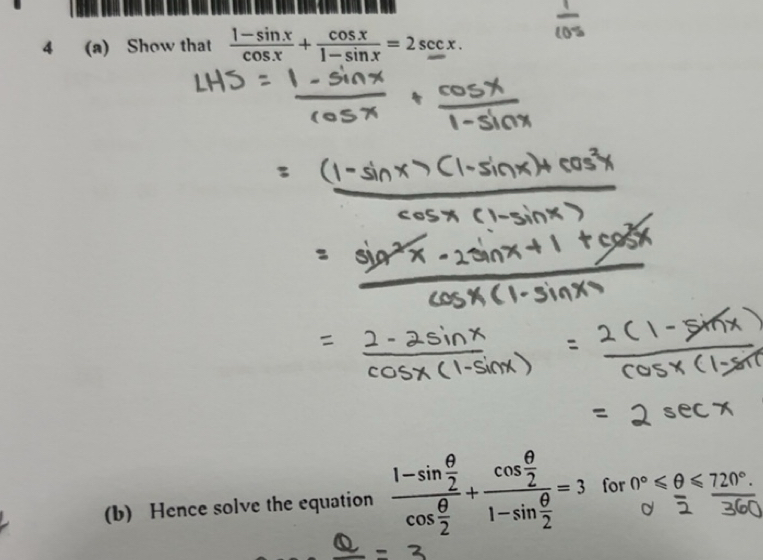 1/cos
4 (a) Show that (1−sin x)/(cos x) + (cos x)/(1−sin x) = 2 sec x.
LHS = (1 - sinx)/(cosx) + (cosx)/(1-sinx)
= ((1-sinx)(1-sinx)+cos²x)/(cosx(1-sinx))
= (sin²x - 2sinx + 1 + cos²x)/(cosx(1-sinx))
= (2-2sinx)/(cosx(1-sinx)) = 2(1-sinx)/(cosx(1-sin
= 2 sec x
(b) Hence solve the equation (1−sin θ/2)/(cos θ/2) + (cos θ/2)/(1−sin θ/2) = 3 for 0° ⩽ θ ⩽ 720°.
0 2 360
θ = 3